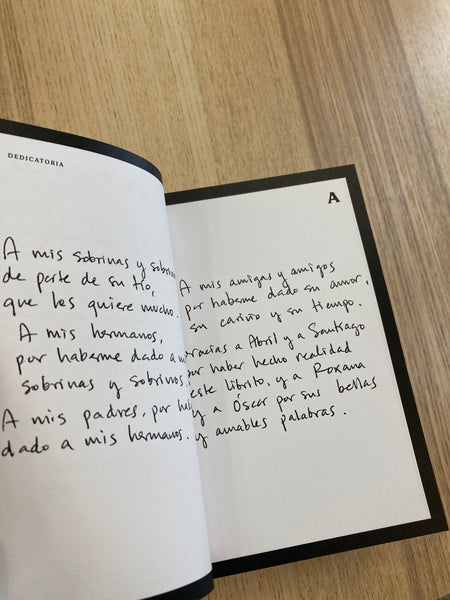 DEDICATORIA
A mis sobrinas y sobrin
de parte de su tío,
que les quiere mucho.
A mis hermanos,
por haberme dado a m
sobrinas y sobrinos.
A mis padres, por hab
dado a mis hermanos.
A
A mis amigas y amigos
por haberme dado su amor,
su cariño y su tiempo.
racias a Abril y a Santiago
por haber hecho realidad
este librito, y a Roxana
y a Óscar por sus bellas
y amables palabras.